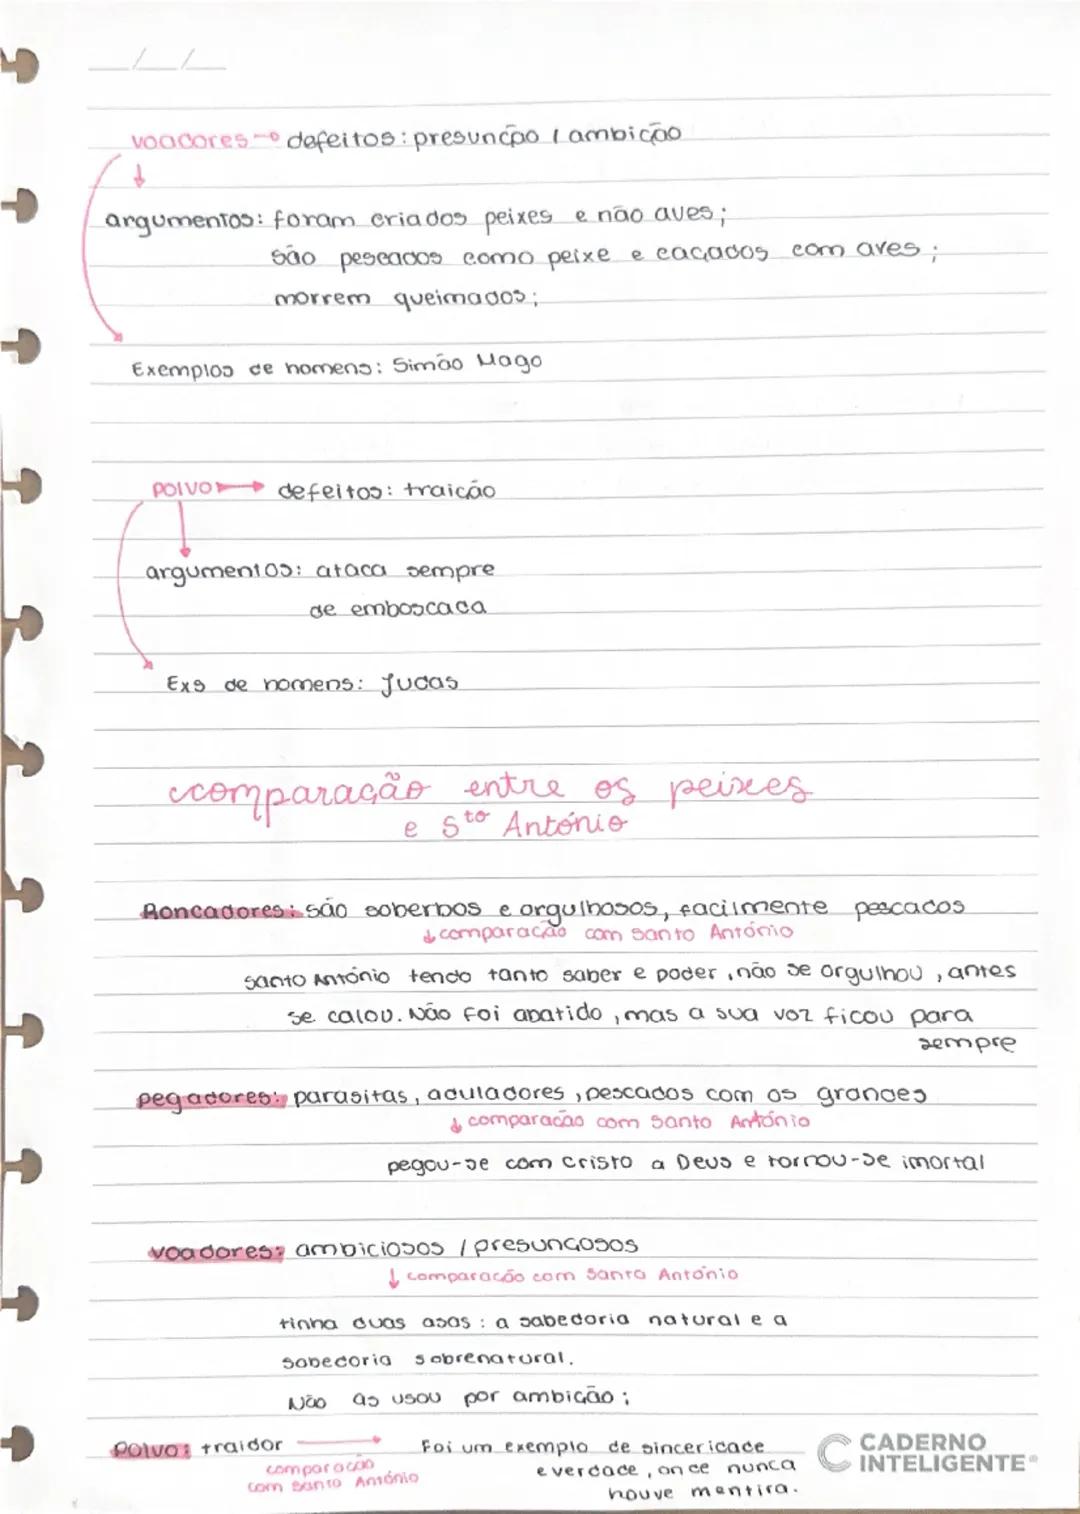 voadores → defeitos: presunção / ambição
argumentos: foram criados peixes e não aves;
são pescados como peixe e caçados com aves;
morrem queimados;
Exemplos de homens: Simão Mago
POlVO → defeitos: traição
argumentos: ataca sempre
de emboscada
Exs de homens: Judas
comparação entre os peixes
e Sto António
Roncadores: são soberbos e orgulhosos, facilmente pescados
↓ comparação com santo António
santo António tendo tanto saber e poder, não se orgulhou, antes
se calou. Não foi abatido, mas a sua voz ficou para
sempre
pegadores: parasitas, aduladores, pescados com os grandes
↓ comparação com santo António
pegou-se com cristo a Deus e tornou-se imortal
voadores: ambiciosos / presunçosos
↓ comparação com Santo António
tinha duas asas: a sabedoria natural e a
sabedoria sobrenatural.
Não as usou por ambição;
POlvo: traidor → Foi um exemplo de sinceridade
comparação
com santo António
e verdade, onde nunca
houve mentira.
CADERNO
INTELIGENTE®